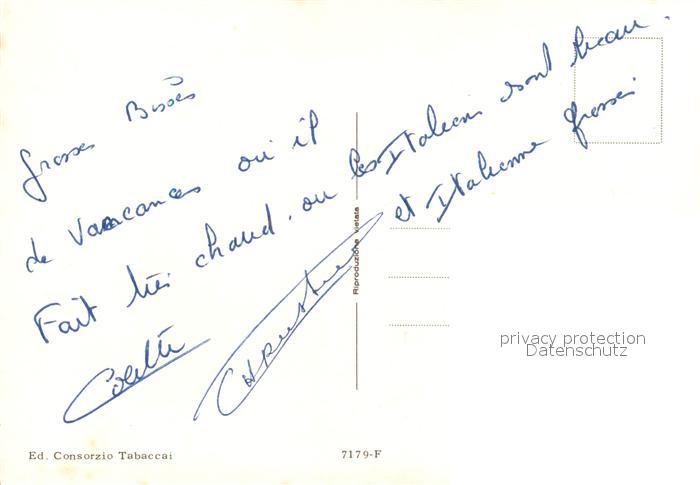 Grosses Bisoës
de Vacances où il
Fait très chaud. ou les Italiens sont beau.
et Italienne grosses
Colette Christine
Riproduzione vietata
privacy protection
Datenschutz
Ed. Consorzio Tabaccai
7179-F